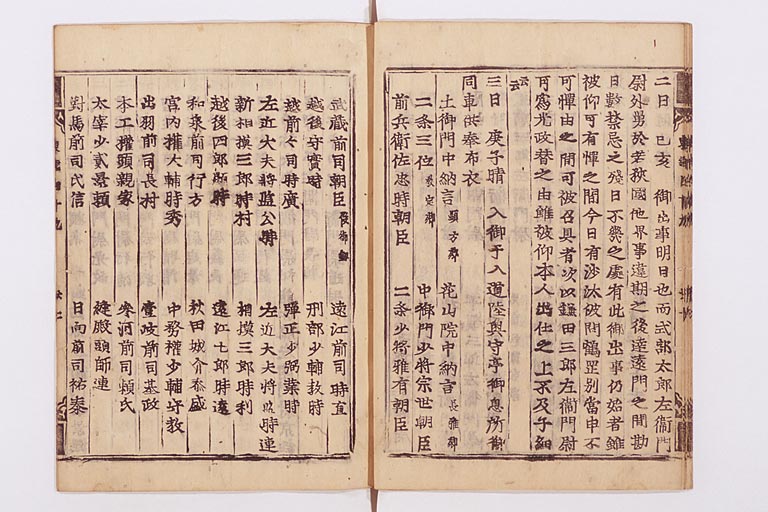 二日 己亥 御出事明日也而式部太郎左衞門
尉外舅於若狹國他界事違期之後達遠門之間勘
日數禁忌之殘日不幾之處有此御出事仍始者雖
被仰可有憚之間今日有沙汰被問鶴罡別當申不
可憚由之間可被召具者次以鎌田三郎左衞門尉
可爲光政替之由雖被仰本人出仕之上不及子細
云云
三日 庚子晴 入御于入道陸奥守亭御息所御
同車供奉布衣
土御門中納言顯方卿 花山院中納言長雅卿
二条三位教定卿 中御門少將宗世朝臣
前兵衞佐忠時朝臣 二条少將雅有朝臣
武藏前司朝臣 遠江前司時直
越後守實時 刑部少輔教時
越前々司時廣 彈正少弼業時
左近大夫將監公時 左近大夫將監時連
新相摸三郎時村 相摸三郎時利
越後四郎顯時 遠江七郎時遠
和泉前司行方 秋田城介泰盛
宮内權大輔時秀 中務權少輔
出羽前司長村 壹岐前司基政
木工權頭親家 參河前司頼氏
太宰少貳景頼 縫殿頭師連
對馬前司氏信 日向前司祐泰